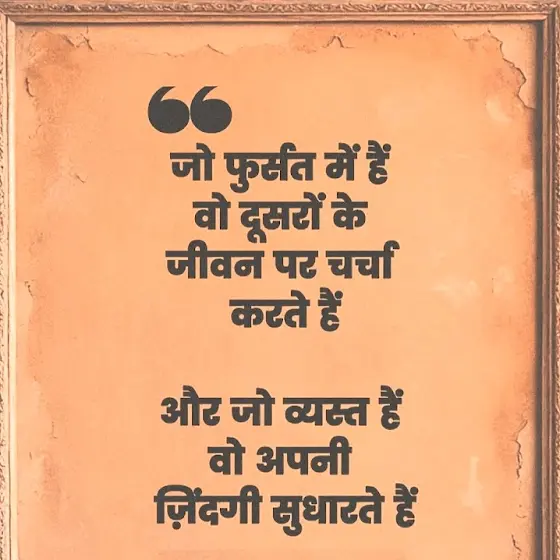 ❝
जो फुर्सत में हैं
वो दूसरों के
जीवन पर चर्चा
करते हैं
और जो व्यस्त हैं
वो अपनी
ज़िंदगी सुधारते हैं